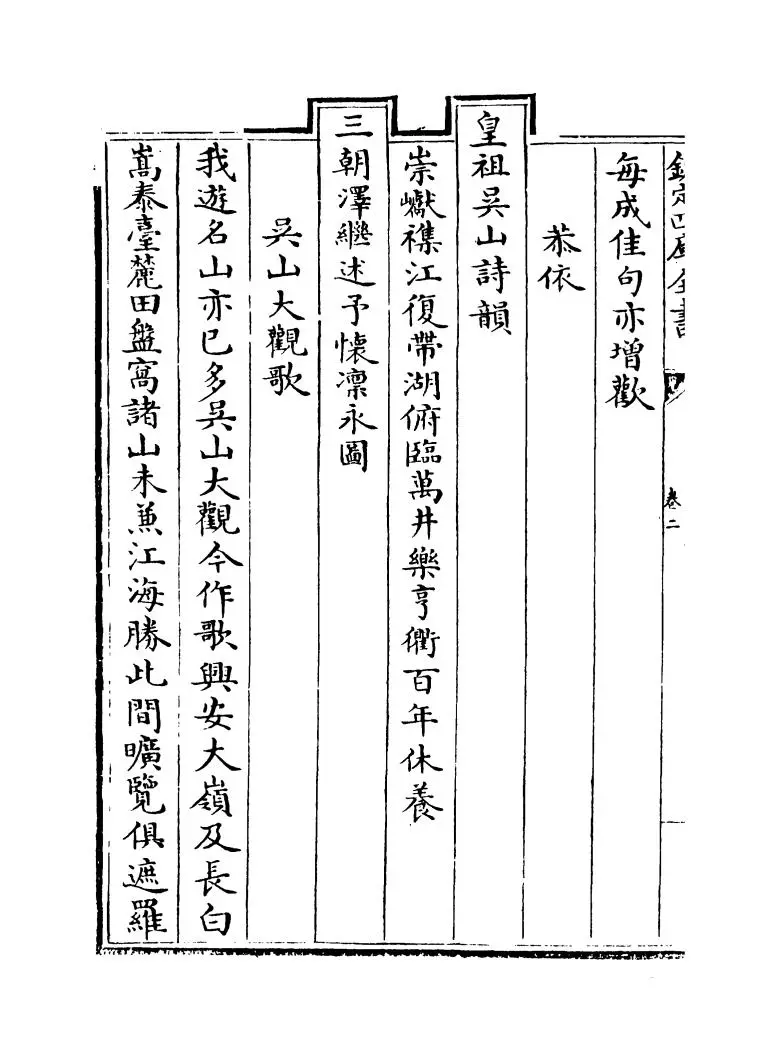 欽定四庫全書
卷二
每成佳句亦增歡
恭依
皇祖吳山詩韻
崇巘襟江復帶湖俯臨萬井樂亨衢百年休養
三朝澤繼述予懷凜永圖
吳山大觀歌
我遊名山亦已多吳山大觀今作歌興安大嶺及長白
嵩泰臺麓田盤窩諸山未兼江海勝此間曠覽俱遮羅